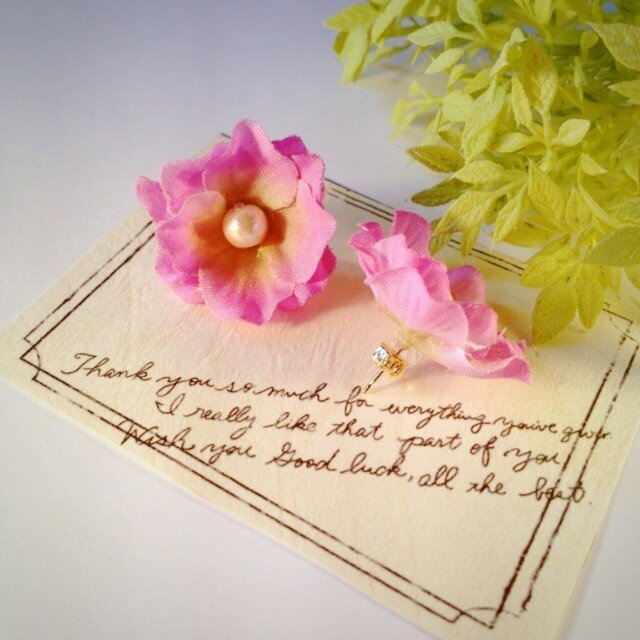 Thank you so much for everything you've given
I really like that part of you
Wish you Good luck, all the best.